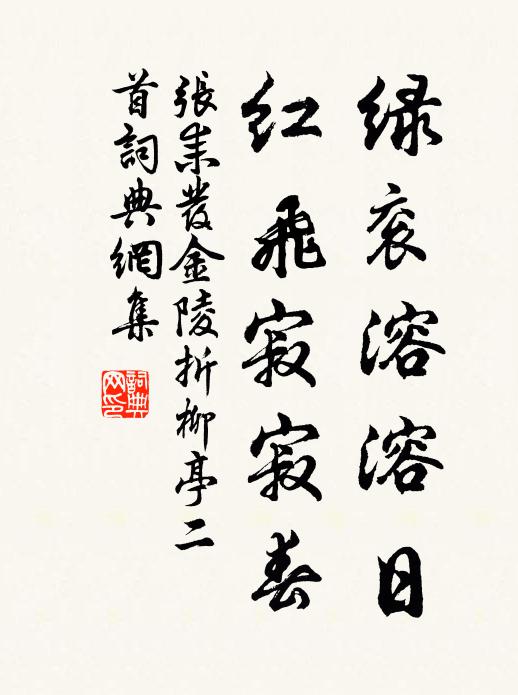 绿衮溶溶日
红飛寂寂春
張耒發金陵折柳亭二
首詞典網集
詞典
网印